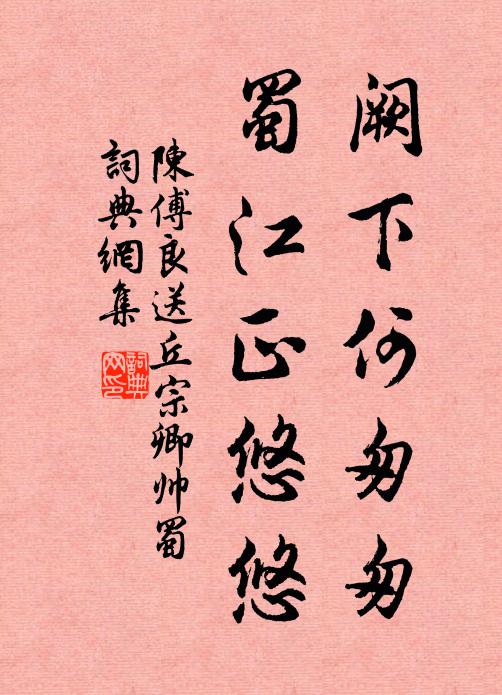 阙下何匆匆
蜀江正悠悠
陳傅良送丘宗卿帅蜀
詞典網集
詞典网印